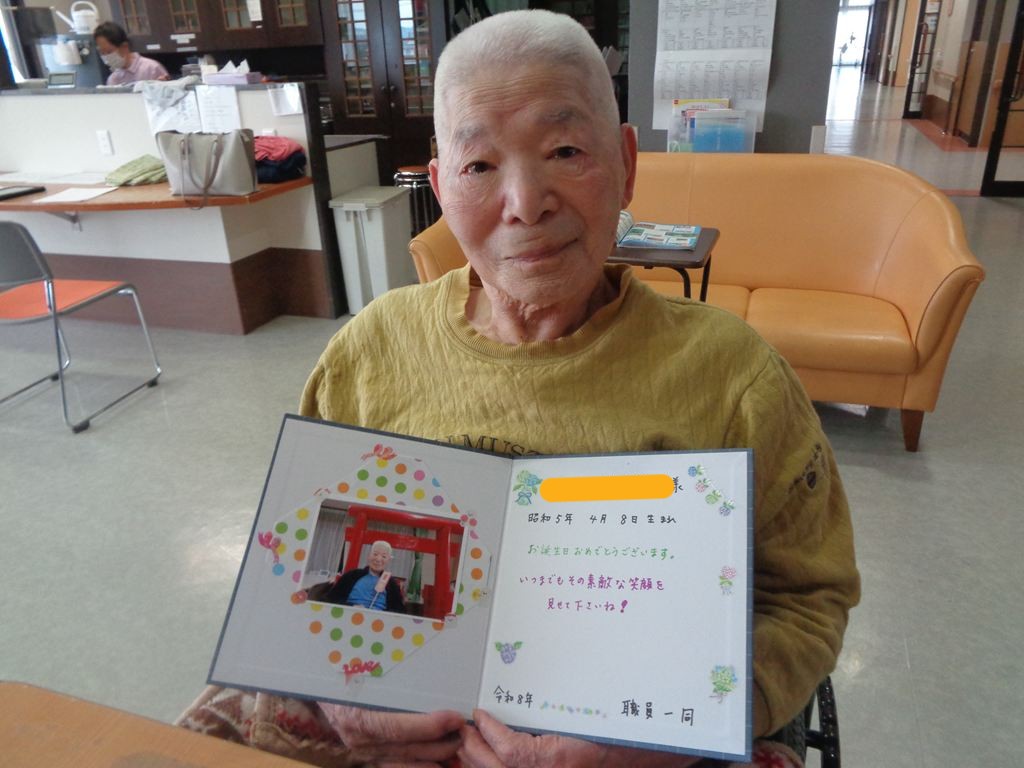 様
昭和5年 4月 8日 生まれ
お誕生日おめでとうございます。
いつまでもその素敵な笑顔を
見せて下さいね!
令和8年
職員 一同
LOVE